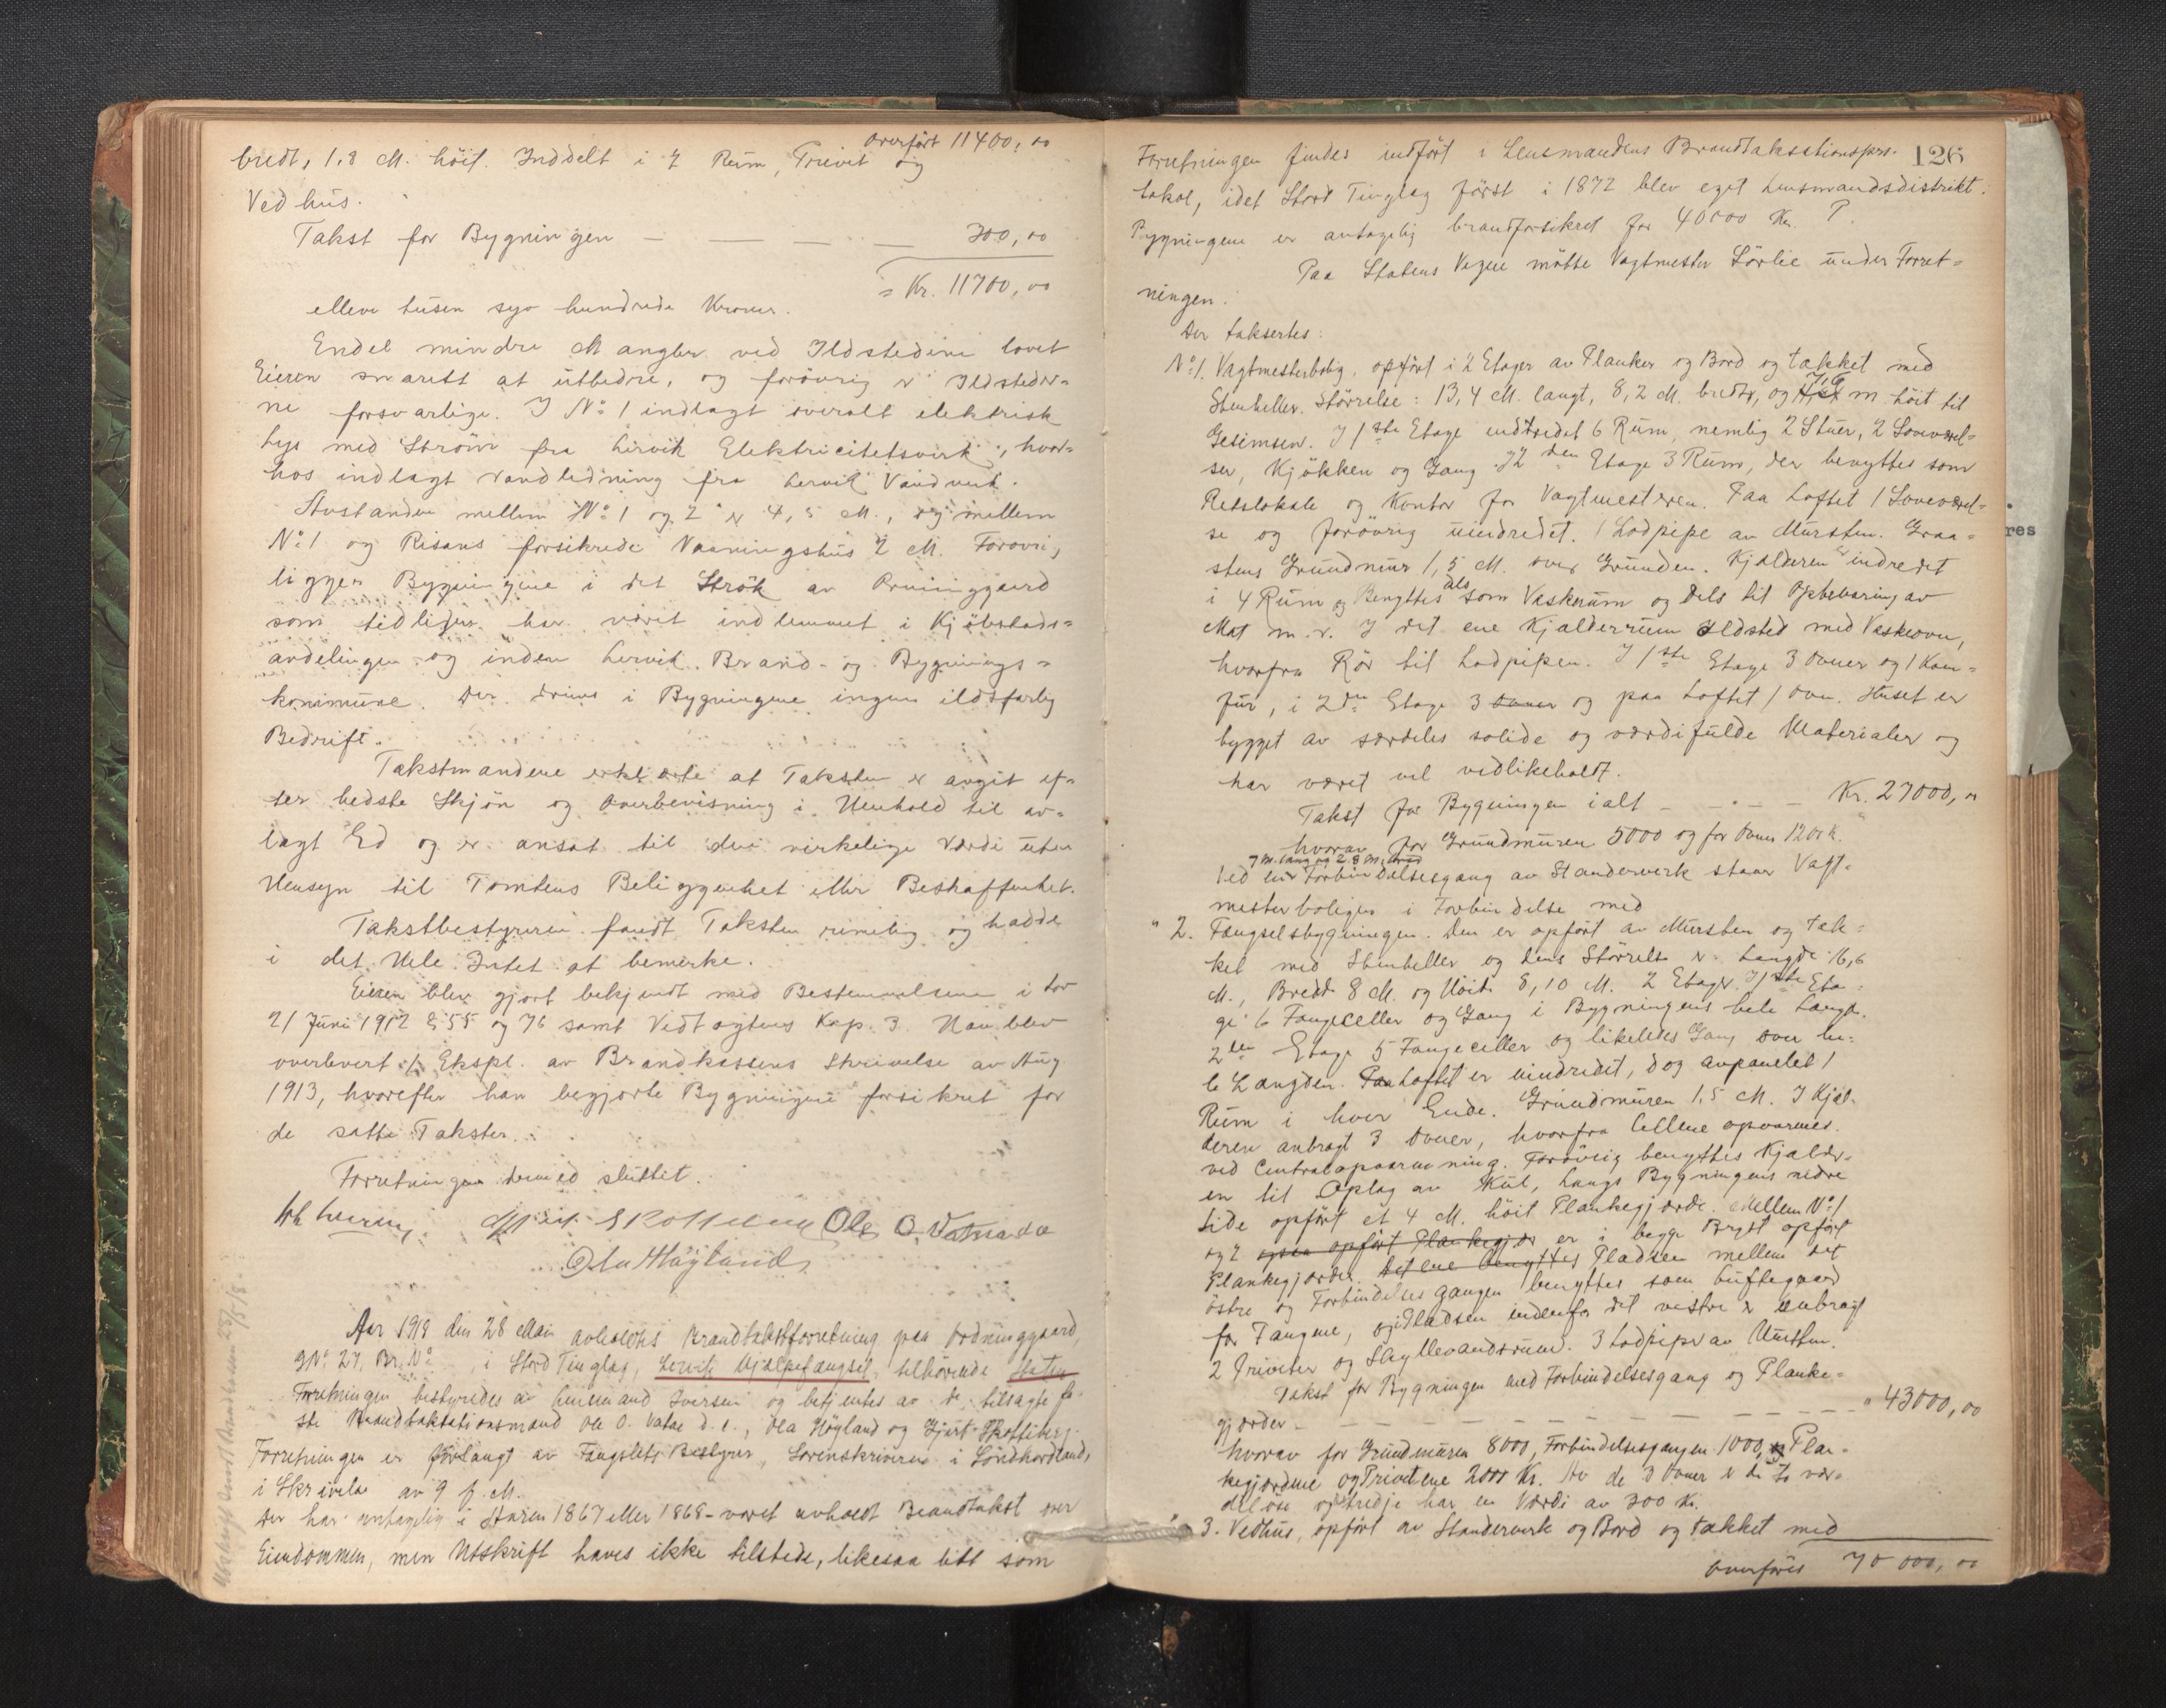 overført 11400,00
bredt, 1,8 M. höit. Inddelt i 2 Rum, Privet og
Vedhus.
Takst for Bygningen — — — — 300,00
= Kr. 11700,00
elleve tusen syv hundrede Kroner.
Endel mindre Mangler ved Ildstedene lovet
Eieren snarest at utbedre, og forövrig er Ildsteder-
ne forsvarlige. I No 1 indlagt overalt elektrisk
Lys med Ström fra Lervik Elektricitetsverk, hvor-
hos indlagt Vandledning fra Lervik Vandverk.
Avstanden mellem No 1 og 2 er 4,5 M., og mellem
No 1 og Risans forsikrede Vaaningshus 2 M. Forövrig
ligger Bygningene i det Strök av
som tidligere har været indlemmet i Kjöbstads-
avdelingen og inden Lervik Brand- og Bygnings-
kommune. Der drives i Bygningene ingen ildsfarlig
Bedrift.
Takstmændene erklærte at Taksten er avgit ef-
ter bedste Skjön og Overbevisning i Henhold til av-
lagt Ed og er ansat til den virkelige Værdi uten
Hensyn til Tomtens Beliggenhet eller Beskaffenhet.
Takstbestyreren fandt Taksten rimelig og hadde
i det Hele Intet at bemerke.
Eieren blev gjort bekjendt med Bestemmelsene i Lov
21 Juni 1912 § 55 og 76 samt Vedtægtens Kap. 3. Han blev
overlevert 1 Ekspl. av Brandkassens Skrivelse av Aug.
1913, hvorefter han begjærte Bygningene forsikret for
de satte Takster.
Forretningen dermed sluttet.
Gjert Skotteberg Ole O. Vatna do
Ola Høgland
Aar 1918 den 28 Mai avholdtes Brandtakstforretning paa Ordninggaard,
GNo 27, Br.No i Stord Tinglag, Lervik Hjælpefængsel tilhörende Staten
Forretningen bestyredes av Lensmand Iversen og betjentes av de tilsagte fa-
ste Brandtakstationsmænd Ole O. Vatne d. e., Ola Høgland og Gjert Skotteberg.
Forretningen er forlangt av Fængslets Bestyrer, Sorenskriveren i Söndhordland,
i Skrivelse av 9 f. M.
Der har antagelig i Aaren 1867 eller 1868 været avholdt Brandtakst over
Eiendommen, men Utskrift haves ikke tilstede, likesaa litt som
Utskrift sendt Amtkassen 28/5 18.
126
Forretningen findes indfört i Lensmandens Brandtakstionspro-
tokol, idet Stord Tinglag först i 1872 blev eget Lensmandsdistrikt.
Bygningene er antagelig brandforsikret for 40000 Kr. ?
Paa Statens Vegne mötte Vagtmester Sörlie under Forret-
ningen.
Der taksertes:
No 1. Vagtmesterbolig, opfört i 2 Etager av Planker og Bord og tækket med
Stenheller. Störrelse: 13,4 M. langt, 8,2 M. bredt, og 7,6 m höit til
Gesimsen. I 1ste Etage indredet 6 Rum, nemlig 2 Stuer, 2 Soveværel-
ser, Kjökken og Gang. I 2den Etage 3 Rum, der benyttes som
Retslokale og Kontor for Vagtmesteren. Paa Loftet 1 Soveværel-
se og forövrig uindredet. 1 Lodpipe av Mursten. Graa-
stens Grundmur 1,5 M. over Grunden. Kjælderen er indredet
i 4 Rum og Benyttes dels som Vaskerum og dels til Opbevaring av
Mat m. v. I det ene Kjælderrum Ildsted med Vaskeovn,
hvorfra Rör til Lodpipen. I 1ste Etage 3 Ovner og 1 Kom-
fur, i 2den Etage 3 Ovner og paa Loftet 1 Ovn. Huset er
bygget av særdeles solide og værdifulde Materialer og
har været vel vedlikeholdt.
Takst for Bygningen ialt — — — — Kr. 27000,00
hvorav for Grundmuren 5000 og for Ovner 1200 K.
7 m. lang og 2,8 m. bred
Ved en Forbindelsesgang av Standerverk staar Vagt-
mesterboligen i Forbindelse med
" 2. Fængselsbygningen. Den er opfört av Mursten og tæk-
ket med Stenheller og dens Störrelse er: Længde 16,6
M., Bredde 8 M. og Höide 8,10 M. 2 Etager. I 1ste Eta-
ge 6 Fangeceller og Gang i Bygningens hele Længde.
2den Etage 5 Fangeceller og likeledes Gang over he-
le Længden. Paa Loftet er uindredet, dog avpanelet 1
Rum i hver Ende. Grundmuren 1,5 M. I Kjæl-
deren anbragt 3 Ovner, hvorfra Cellene opvarmes
ved Centralopvarmning. Forövrig benyttes Kjælder-
en til Oplag av Kul, Langs Bygningens nedre
Side opfört et 4 M. höit Plankegjærde. Mellem No 1
og 2 opfört Plankegjær er i begge Bryst opfört
Plankegjærder. Det ene benyttes Pladsen mellem det
östre og Forbindelsesgangen benyttes som Luftegaard
for Fangene, og Pladsen indenfor det vestre er anbragt
2 Priveter og Skyllevandsrum. 3 Lodpiper av Mursten.
Takst for Bygningen med Forbindelsesgang og Planke-
gjærder — — — — — — — — — — " 43000,00
hvorav for Grundmuren 8000, Forbindelsesgangen 1000, og Plan-
kegjærdene og Privetene 2000 Kr. Av de 3 Ovner er de To vær-
dilöse og tredje har en Værdi av 300 Kr.
" 3. Vedhus, opfört av Standerverk og Bord og tækket med
Overföres 70 000,00
res